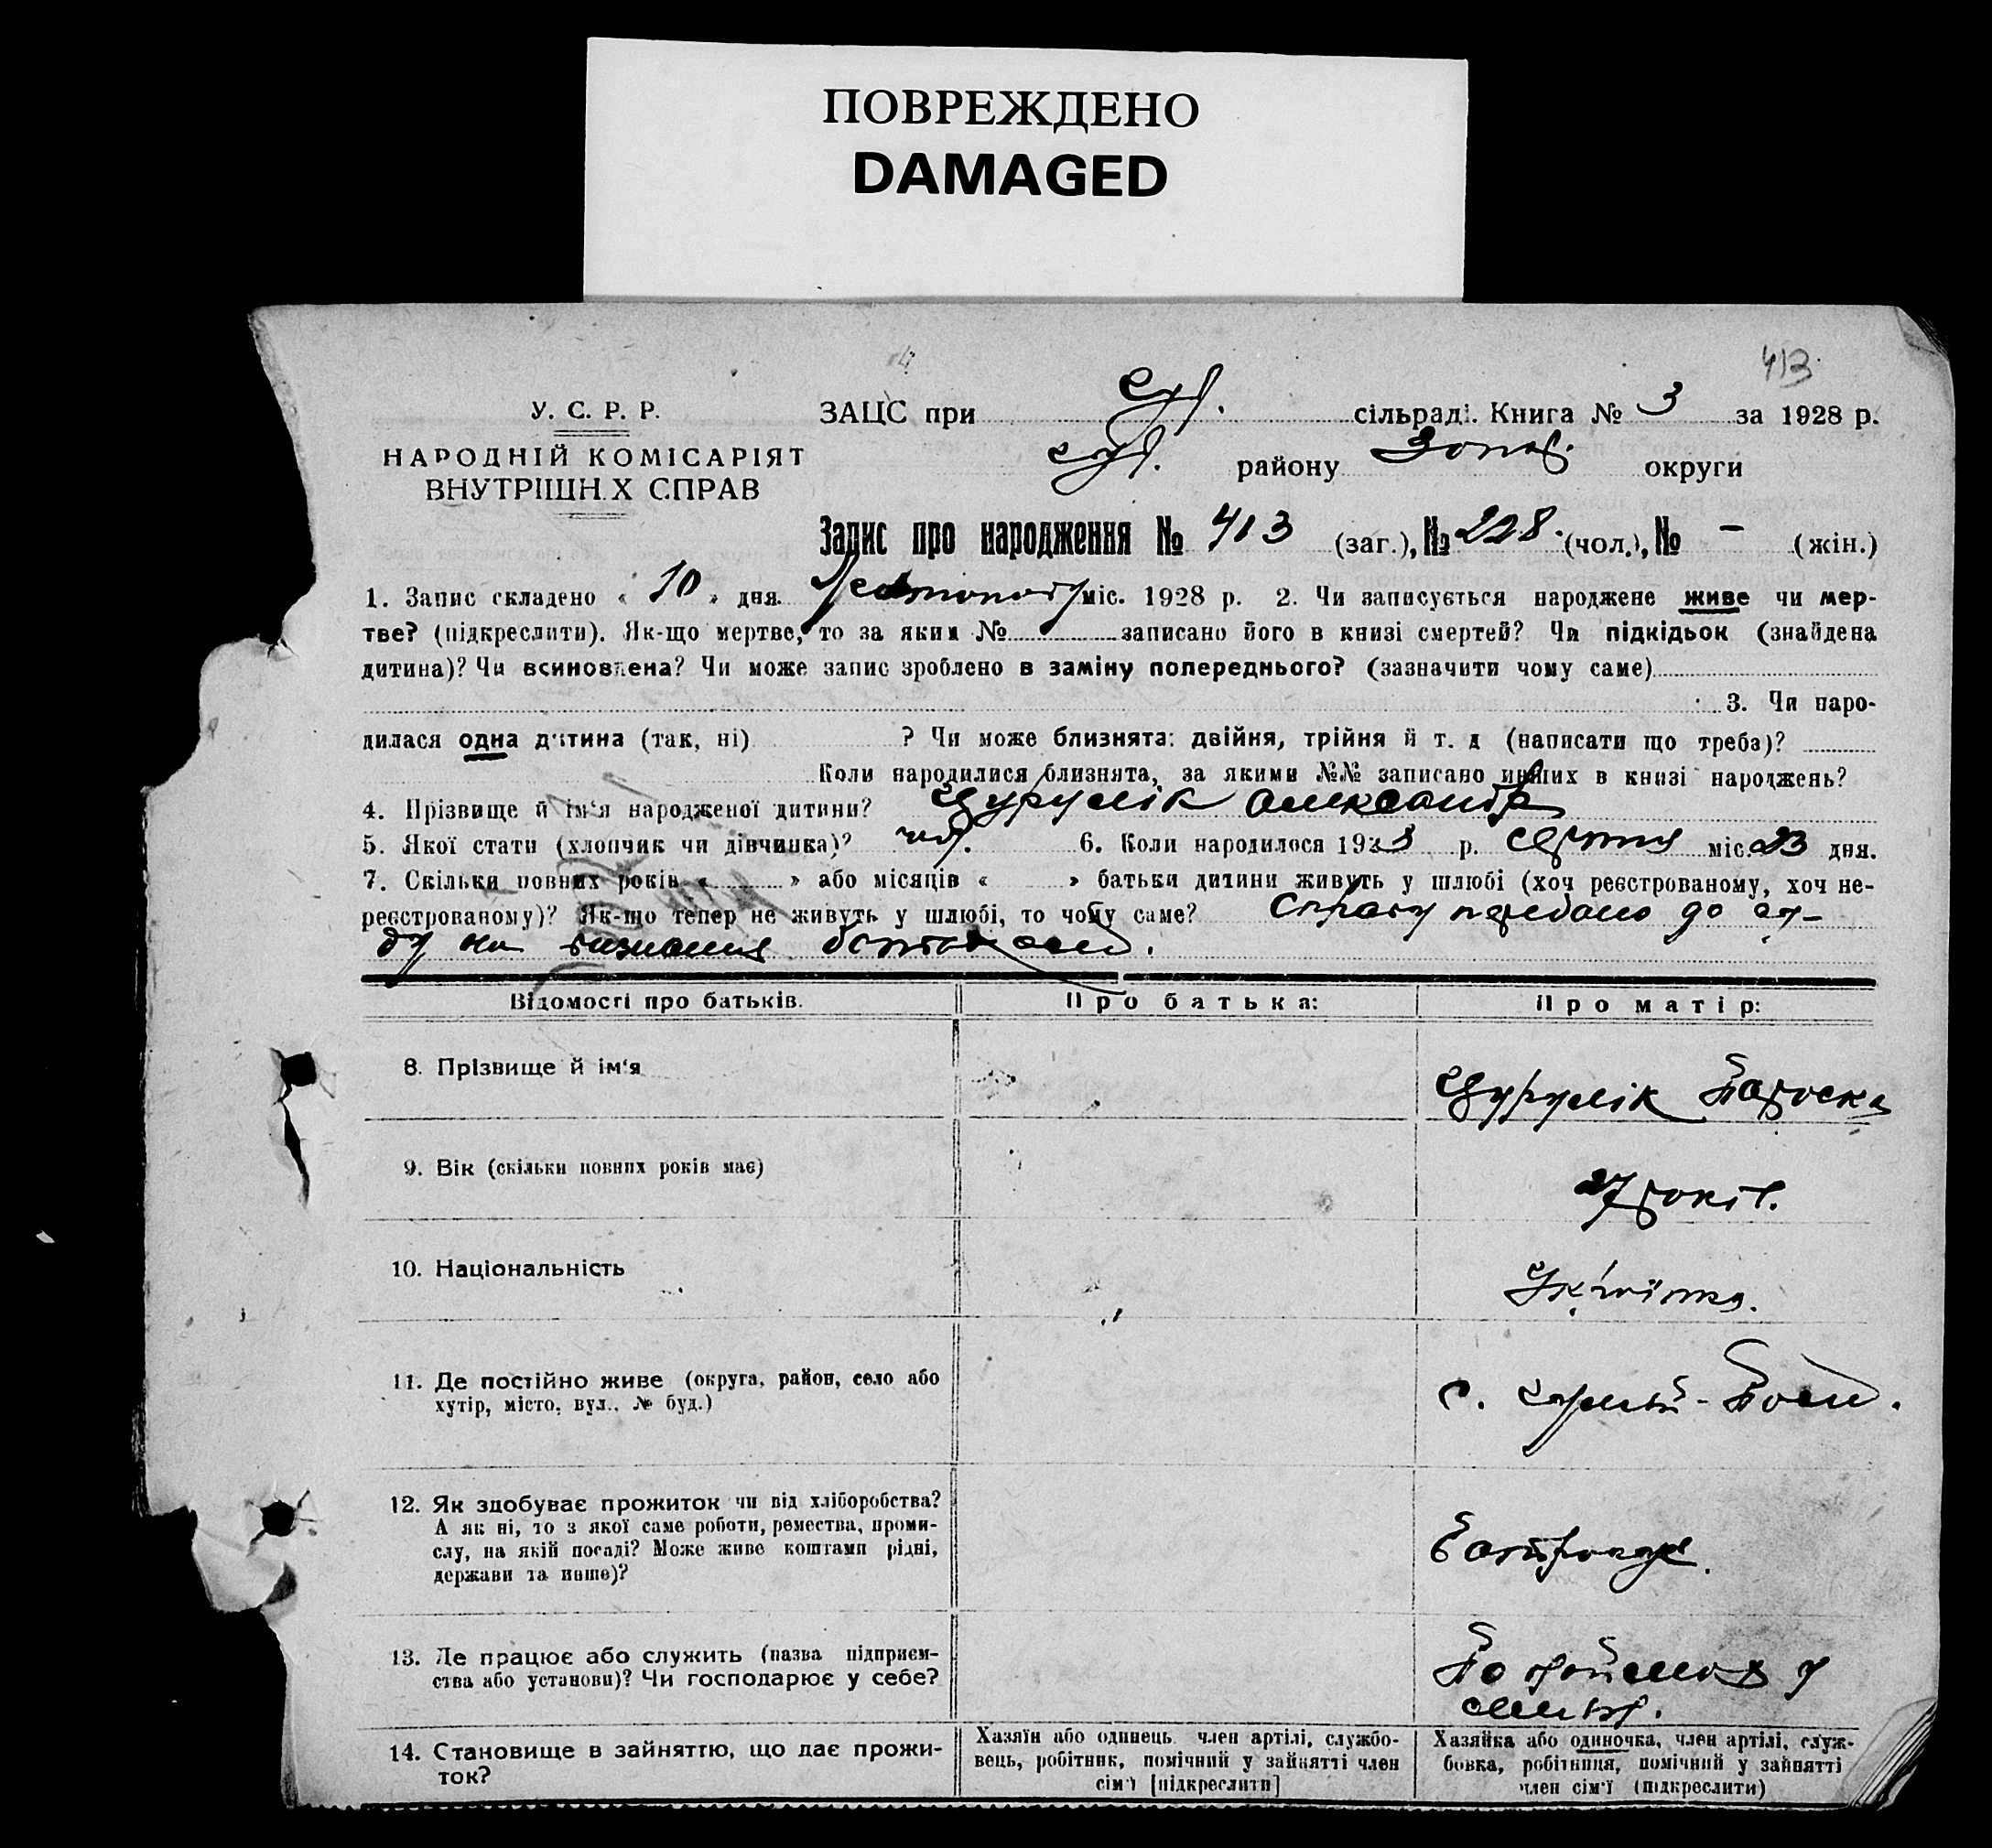 ПОВРЕЖДЕНО
DAMAGED
413
У. С. Р. Р.
НАРОДНІЙ КОМІСАРІЯТ
ВНУТРІШН.Х СПРАВ
ЗАЦС при сільраді. Книга № 3 за 1928 р.
району Зопов. округи
Запис про народження № 413 (заг.), № 228. (чол.), № - (жін.)
1. Запис складено « 10 » дня міс. 1928 р. 2. Чи записується народжене живе чи мер-
тве? (підкреслити). Як-що мертве, то за яким № записано його в книзі смертей? Чи підкідьок (знайдена
дитина)? Чи всиновлена? Чи може запис зроблено в заміну попереднього? (зазначити чому саме)
3. Чи наро-
дилася одна дитина (так, ні) ? Чи може близнята: двійня, трійня й т. д (написати що треба)?
Коли народилися близнята, за якими №№ записано инших в книзі народжень?
4. Прізвище й ім'я народженої дитини? Цурулік Олександр
5. Якої стати (хлопчик чи дівчинка)? чол. 6. Коли народилося 1928 р. серпня міс. 23 дня.
7. Скільки повних років « » або місяців « » батьки дитини живуть у шлюбі (хоч реєстрованому, хоч не-
реєстрованому)? Як-що тепер не живуть у шлюбі, то чому саме? Справу передано до су-
ду на визнання
Відомості про батьків. Про батька: Про матір:
8. Прізвище й ім'я Цурулік
9. Вік (скільки повних років має) 27 років.
10. Національність Українка.
11. Де постійно живе (округа, район, село або
хутір, місто, вул., № буд.) с.
12. Як здобуває прожиток чи від хліборобства?
А як ні, то з якої саме роботи, ремества, проми-
слу, на якій посаді? Може живе коштами рідні,
держави та инше)?
13. Де працює або служить (назва підприєм-
ства або установи)? Чи господарює у себе?
14. Становище в зайняттю, що дає прожи-
ток?
Хазяїн або одинець, член артілі, службо-
вець, робітник, помічний у зайнятті член
сім'ї [підкреслити]
Хазяйка або одиночка, член артілі, служ-
бовка, робітниця, помічний у зайнятті
член сім'ї (підкреслити)